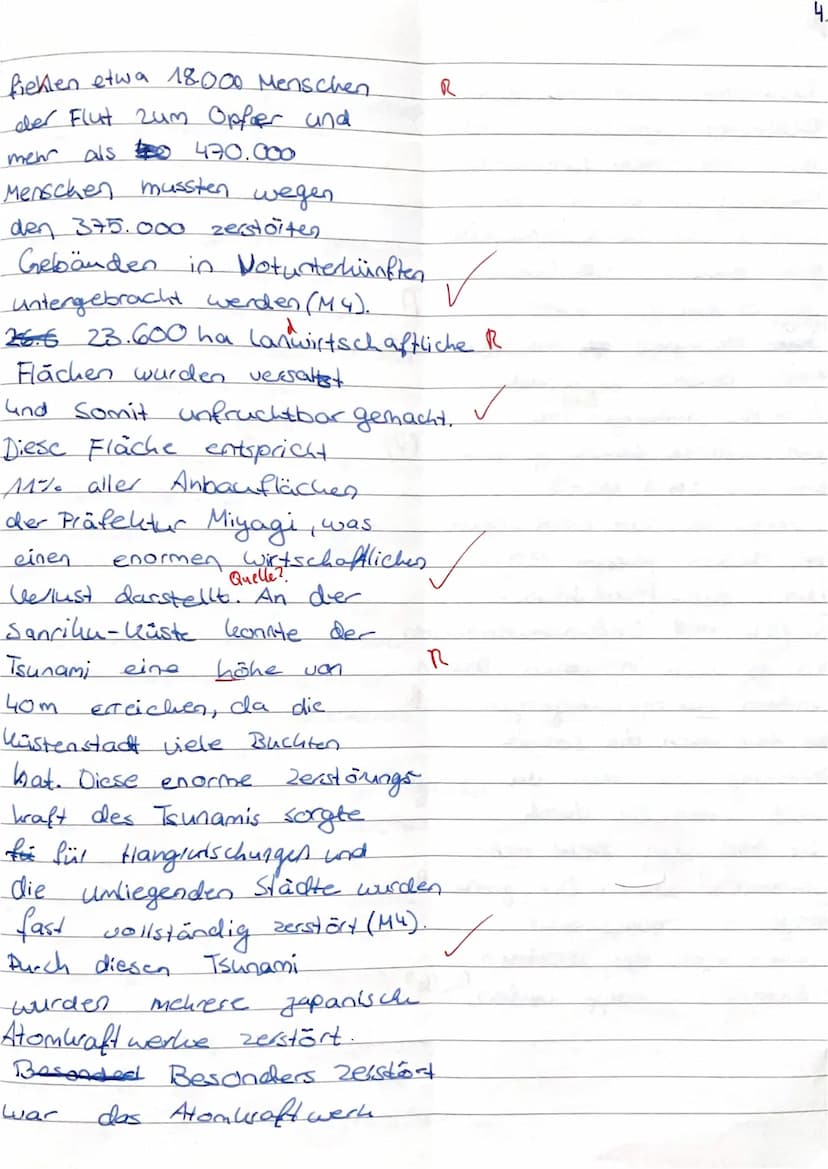 4.
fiehlen etwa 18000 Menschen R
der Flut zum Opfer und
mehr als 470.000
Menschen mussten wegen
den 375.000 zerstörten
Gebäuden in Notunterkünften
untergebracht werden (M4). ✓
26.6 23.600 ha landwirtschaftliche R
Flächen wurden versalzt
und somit unfruchtbar gemacht. ✓
Diese Fläche entspricht
11% aller Anbauflächen
der Präfektur Miyagi, was
einen enormen wirtschaftlichen ✓
Quelle?
Verlust darstellt. An der
Sanriku-Küste konnte der
Tsunami eine höhe von R
40m erreichen, da die
Küstenstadt viele Buchten
hat. Diese enorme Zerstörungs-
kraft des Tsunamis sorgte
für Hangrutschungen und
die umliegenden Städte wurden
fast vollständig zerstört (M4). ✓
Durch diesen Tsunami
wurden mehrere japanische
Atomkraftwerke zerstört.
Besonders zerstört
war das Atomkraftwerk